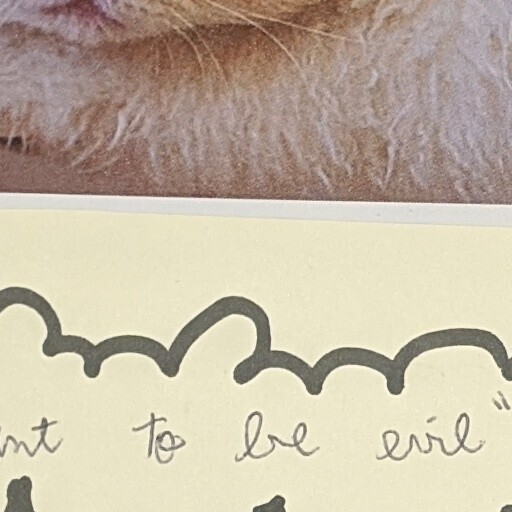 to be evil"